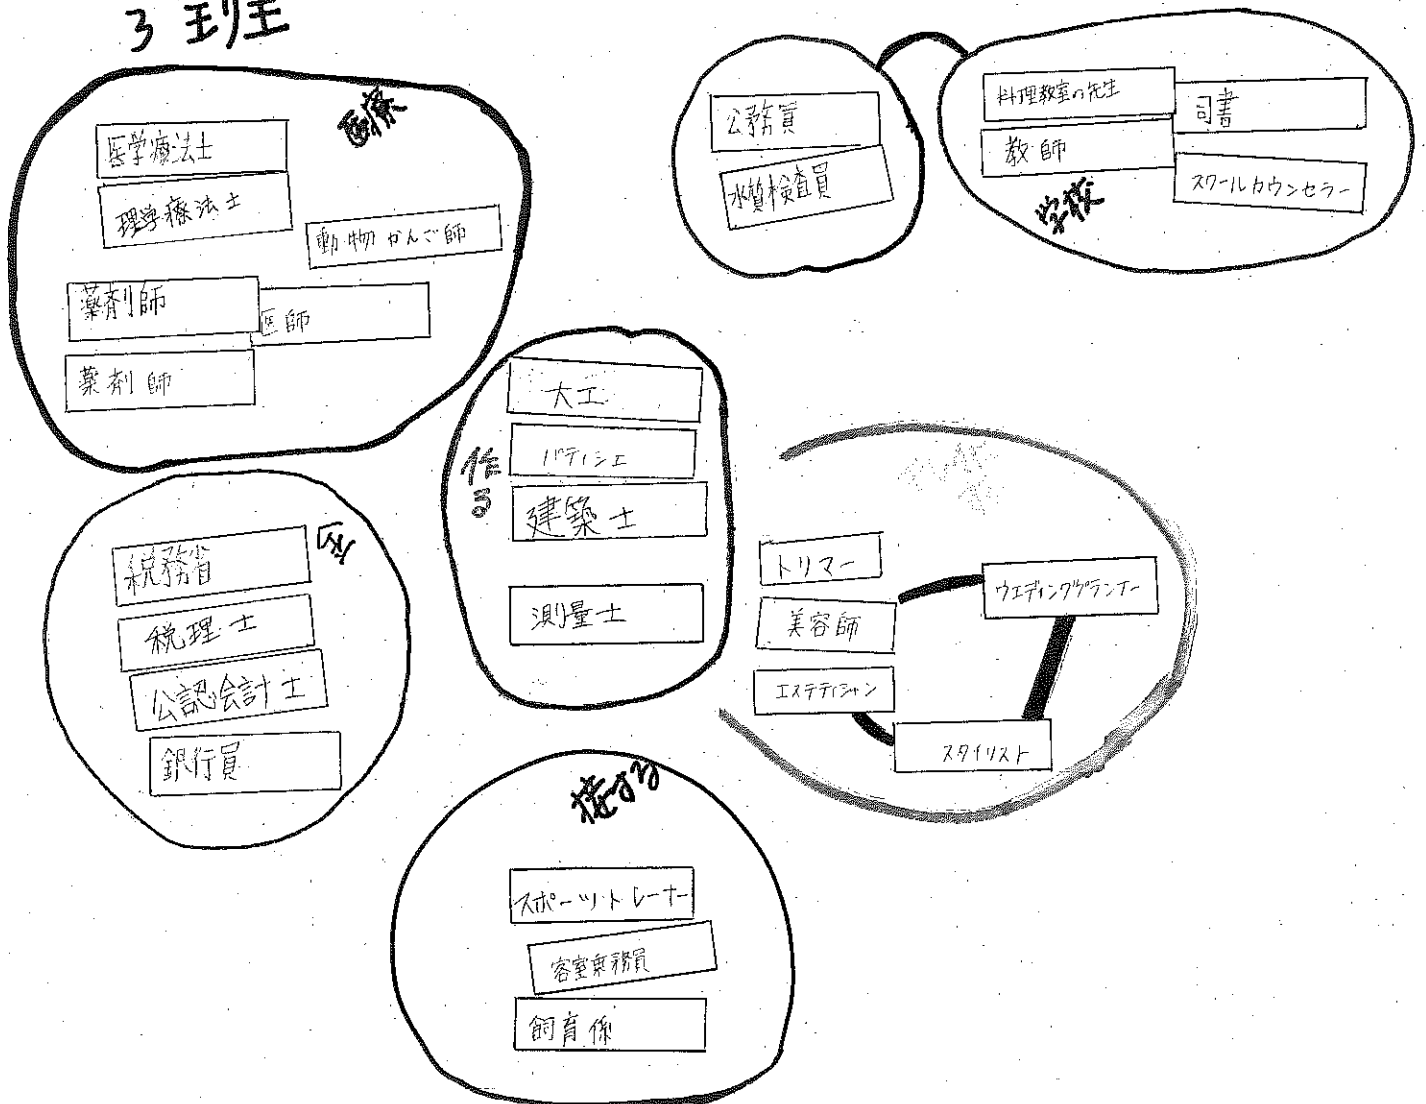 3 班
医療
医学療法士
理学療法士
動物かんご師
薬剤師
医師
薬剤師
公務員
水質検査員
料理教室の先生
司書
教師
スクールカウンセラー
学校
作る
大工
パティシエ
建築士
測量士
税務省
税理士
公認会計士
銀行員
トリマー
美容師
エステティシャン
ウエディングプランナー
スタイリスト
接する
スポーツトレーナー
客室乗務員
飼育係